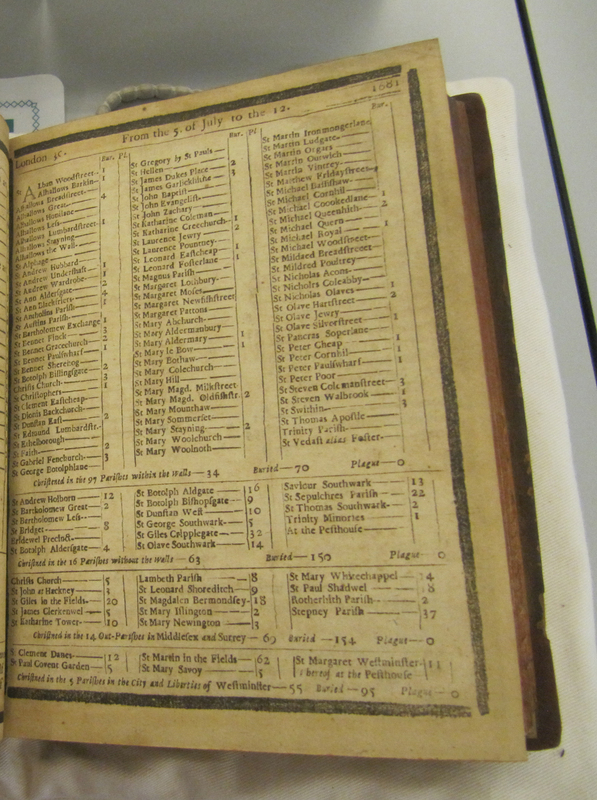 London 3C. From the 5. of July to the 12. 1661
Bur. Pl.
Alban Woodstreet 1
Alhallows Barkin 1
Alhallows Breadstreet 4
Alhallows Great
Alhallows Honilane
Alhallows Less 1
Alhallows Lumbardstreet
Alhallows Stayning
Alhallows the Wall
St Alphage
St Andrew Hubbard 1
St Andrew Undershaft 1
St Andrew Wardrobe 2
St Ann Aldersgate 4
St Ann Blackfriers 1
St Antholins Parish
St Austins Parish
St Bartholomew Exchange 1
St Bennet Finck 3
St Bennet Gracechurch 2
St Bennet Paulswharf 1
St Bennet Sherehog
St Botolph Billingsgate 2
Christs Church 3
St Christophers 1
St Clement Eastcheap
St Dionis Backchurch
St Dunstan East 2
St Edmund Lumbardstr.
St Ethelborough
St Faith 2
St Gabriel Fenchurch 3
St George Botolphlane
Bur. Pl
St Gregory by St Pauls
St Hellen 2
St James Dukes Place 3
St James Garlickhithe
St John Baptist
St John Evangelist
St John Zachary
St Katharine Coleman 1
St Katharine Creechurch 2
St Laurence Jewry
St Laurence Pountney
St Leonard Eastcheap 1
St Leonard Fosterlane 1
St Magnus Parish
St Margaret Lothbury
St Margaret Moses
St Margaret Newfishstreet
St Margaret Pattons
St Mary Abchurch
St Mary Aldermanbury
St Mary Aldermary 1
St Mary le Bow 1
St Mary Bothaw
St Mary Colechurch
St Mary Hill
St Mary Magd. Milkstreet
St Mary Magd. Oldfishstr. 2
St Mary Mounthaw
St Mary Sommerset
St Mary Stayning 2
St Mary Woolchurch
St Mary Woolnoth
Bur.
St Martin Ironmongerlane
St Martin Ludgate
St Martin Orgars
St Martin Outwich
St Martin Vintrey
St Matthew Fridaystreet
St Michael Bassishaw
St Michael Cornhil
St Michael Crookedlane
St Michael Queenhith 2
St Michael Quern
St Michael Royal 1
St Michael Woodstreet
St Mildred Breadstreet
St Mildred Poultrey
St Nicholas Acons
St Nicholas Coleabby
St Nicholas Olaves
St Olave Hartstreet 2
St Olave Jewry
St Olave Silverstreet 1
St Pancras Soperlane
St Peter Cheap
St Peter Cornhil 1
St Peter Paulswharf 1
St Peter Poor
St Steven Colemanstreet 3
St Steven Walbrook 1
St Swithin 3
St Thomas Apostle
Trinity Parish
St Vedast alias Foster
Christned in the 97 Parishes within the Walls — 34 Buried — 70 Plague — 0
St Andrew Holborn 12
St Bartholomew Great 2
St Bartholomew Less
St Bridget 8
Bridewel Precinct
St Botolph Aldersgate 4
St Botolph Aldgate 16
St Botolph Bishopsgate 9
St Dunstan West 10
St George Southwark 5
St Giles Cripplegate 32
St Olave Southwark 14
Saviour Southwark 13
St Sepulchres Parish 22
St Thomas Southwark 2
Trinity Minories 1
At the Pesthouse
Christned in the 16 Parishes without the Walls — 63 Buried — 150 Plague — 0
Christs Church 5
St John at Hackney 3
St Giles in the Fields 20
St James Clerkenwel 5
St Katharine Tower 10
Lambeth Parish 8
St Leonard Shoreditch 9
St Magdalen Bermondsey 18
St Mary Islington 2
St Mary Newington 3
St Mary Whitechappel 14
St Paul Shadwel 18
Rotherhith Parish 2
Stepney Parish 37
Christned in the 14 Out-Parishes in Middlesex and Surrey — 69 Buried — 154 Plague — 0
St Clement Danes 12
St Paul Covent Garden 5
St Martin in the Fields 62
St Mary Savoy 5
St Margaret Westminster 11
hereof at the Pesthouse
Christned in the 5 Parishes in the City and Liberties of Westminster — 55 Buried — 95 Plague — 0